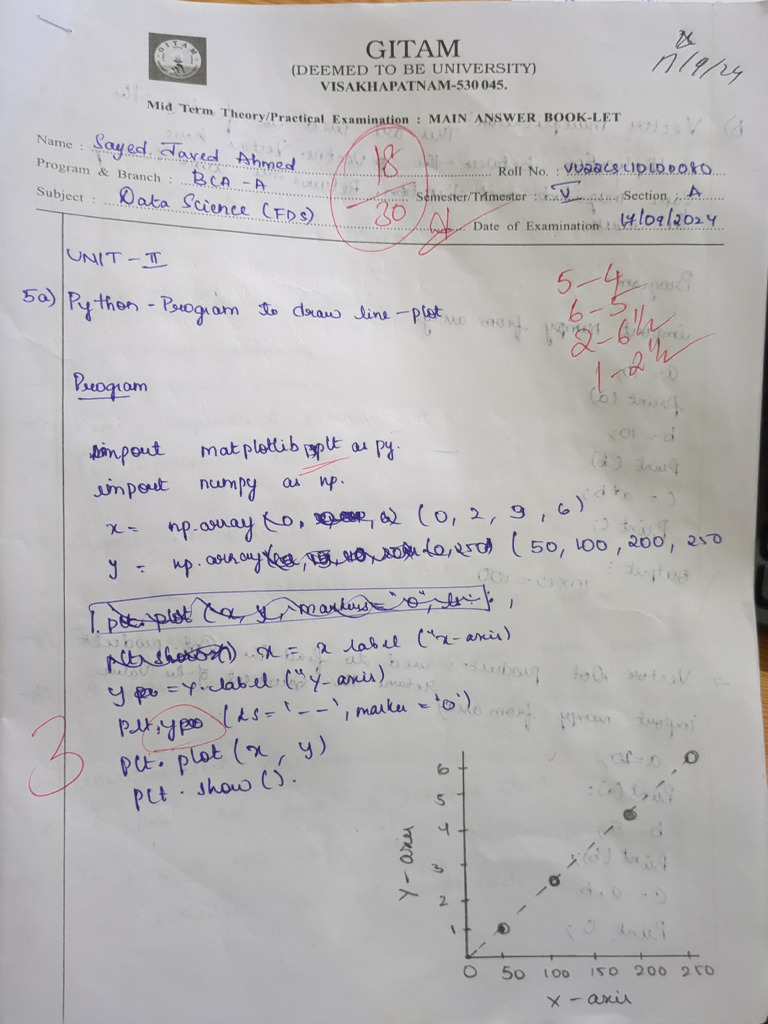 GITAM
(DEEMED TO BE UNIVERSITY)
VISAKHAPATNAM-530 045.
17/9/24
Mid Term Theory/Practical Examination : MAIN ANSWER BOOK-LET
Name : Sayed Javed Ahmed
Roll No. :
Program & Branch : BCA - A
Semester/Trimester : V Section A
Subject : Data Science (FDS)
Date of Examination : 17/09/2024
18
30
5-4
6-5
2-6 1/2
1-2 1/2
UNIT-II
5a) Python-Program to draw line-plot
Program
import matplotlib pplt as py.
import numpy as np.
x = np.array (0, 2, 9, 6)
y = np.array (50, 100, 200, 250
1. plt.plot (x, y, marker="o", ls-
plt.show() x = x label ("x-axis)
y = Y.label ("Y-axis)
Plt.ypo (ls='--', marker='o')
plt.plot (x, y)
plt.show().
3
6
5
4
3
2
1
Y-axis
0 50 100 150 200 250
X-axis